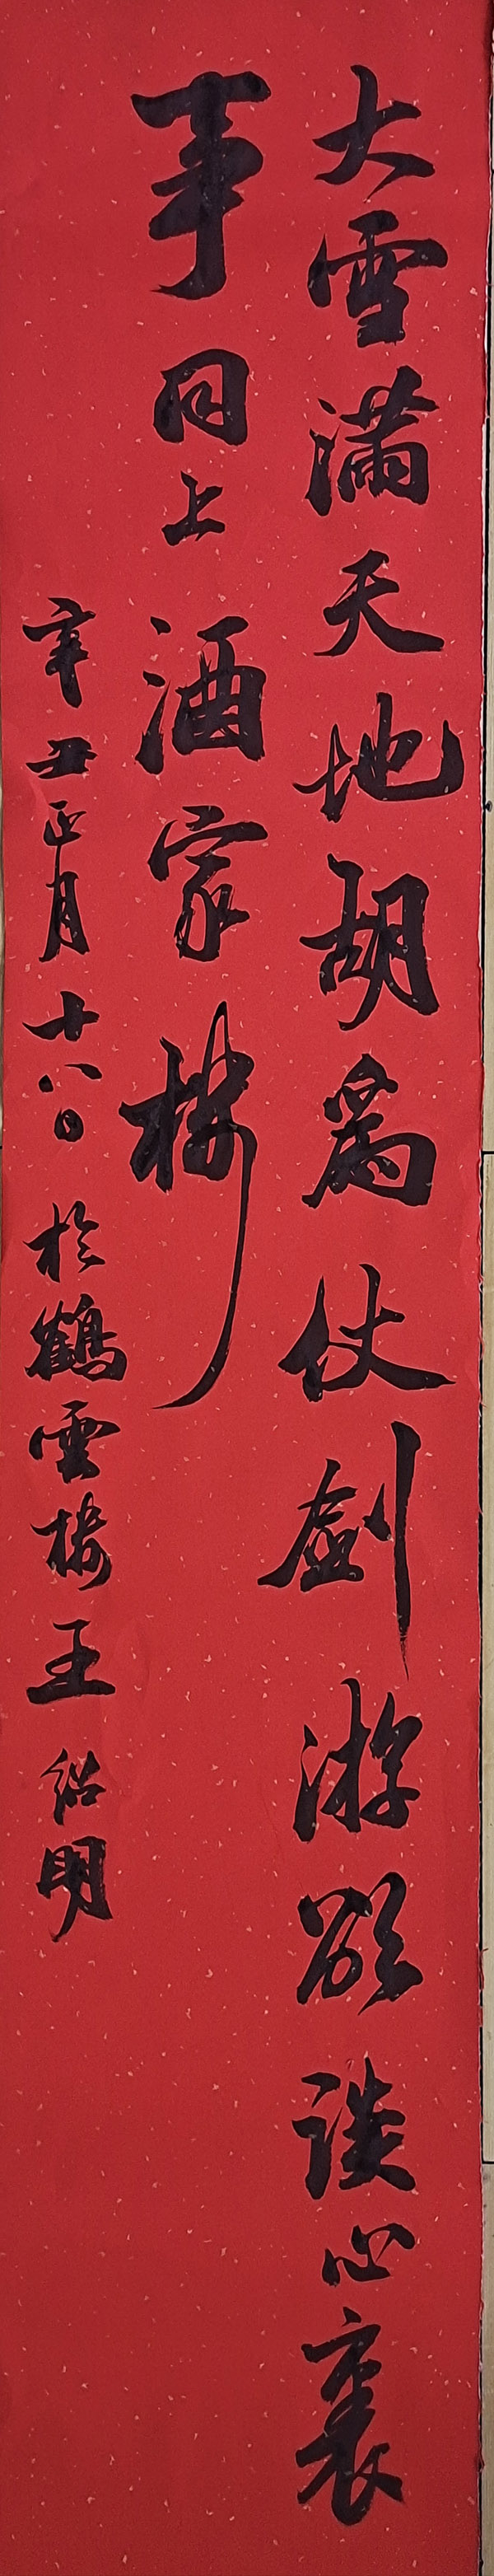 大雪滿天地胡為仗劍游欲談心裏
事同上酒家樓
辛丑正月十八日於鶴雲樓王紹明